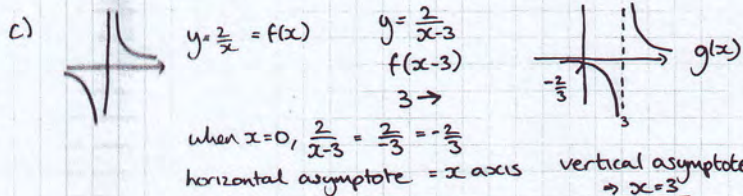 c) y = 2/x = f(x)
y = 2/(x-3)
f(x-3)
3 →
g(x)
-2/3
3
when x=0, 2/(x-3) = 2/-3 = -2/3
horizontal asymptote = x axis
vertical asymptote
⇒ x=3